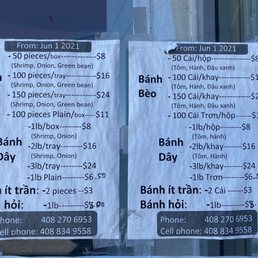 From: Jun 1 2021
- 50 pieces/box----------$8
(Shrimp, Onion, Green bean)
- 100 pieces/tray---------$16
(Shrimp, Onion, Green bean)
- 150 pieces/tray---------$24
(Shrimp, Onion, Green bean)
- 100 pieces Plain/box---$11
-1lb/box----------$8
(Shrimp, Onion)
-2lb/tray---------$16
(Shrimp, Onion)
-3lb/tray---------$24
-1lb Plain---------$6.50
Dây
ít trần: -2 pieces ----$3
hỏi: -1lb------$
Phone: 408 270 6953
Cell phone: 408 834 9558
From: Jun 1 2021
Bánh Bèo
- 50 Cái/hộp----------$8
(Tôm, Hành, Đậu xanh)
- 100 Cái/khay---------$16
(Tôm, Hành, Đậu xanh)
- 150 Cái/khay---------$24
(Tôm, Hành, Đậu xanh)
- 100 Cái Trơn/hộp----$11
Bánh Dây
-1lb/hộp----------$8
(Tôm, Hành)
-2lb/khay---------$16
(Tôm, Hành)
-3lb/khay---------$24
-1lb Trơn---------$6.50
Bánh ít trần: -2 Cái -----$3
Bánh hỏi: -1lb-------$
Phone: 408 270 6953
Cell phone: 408 834 9558